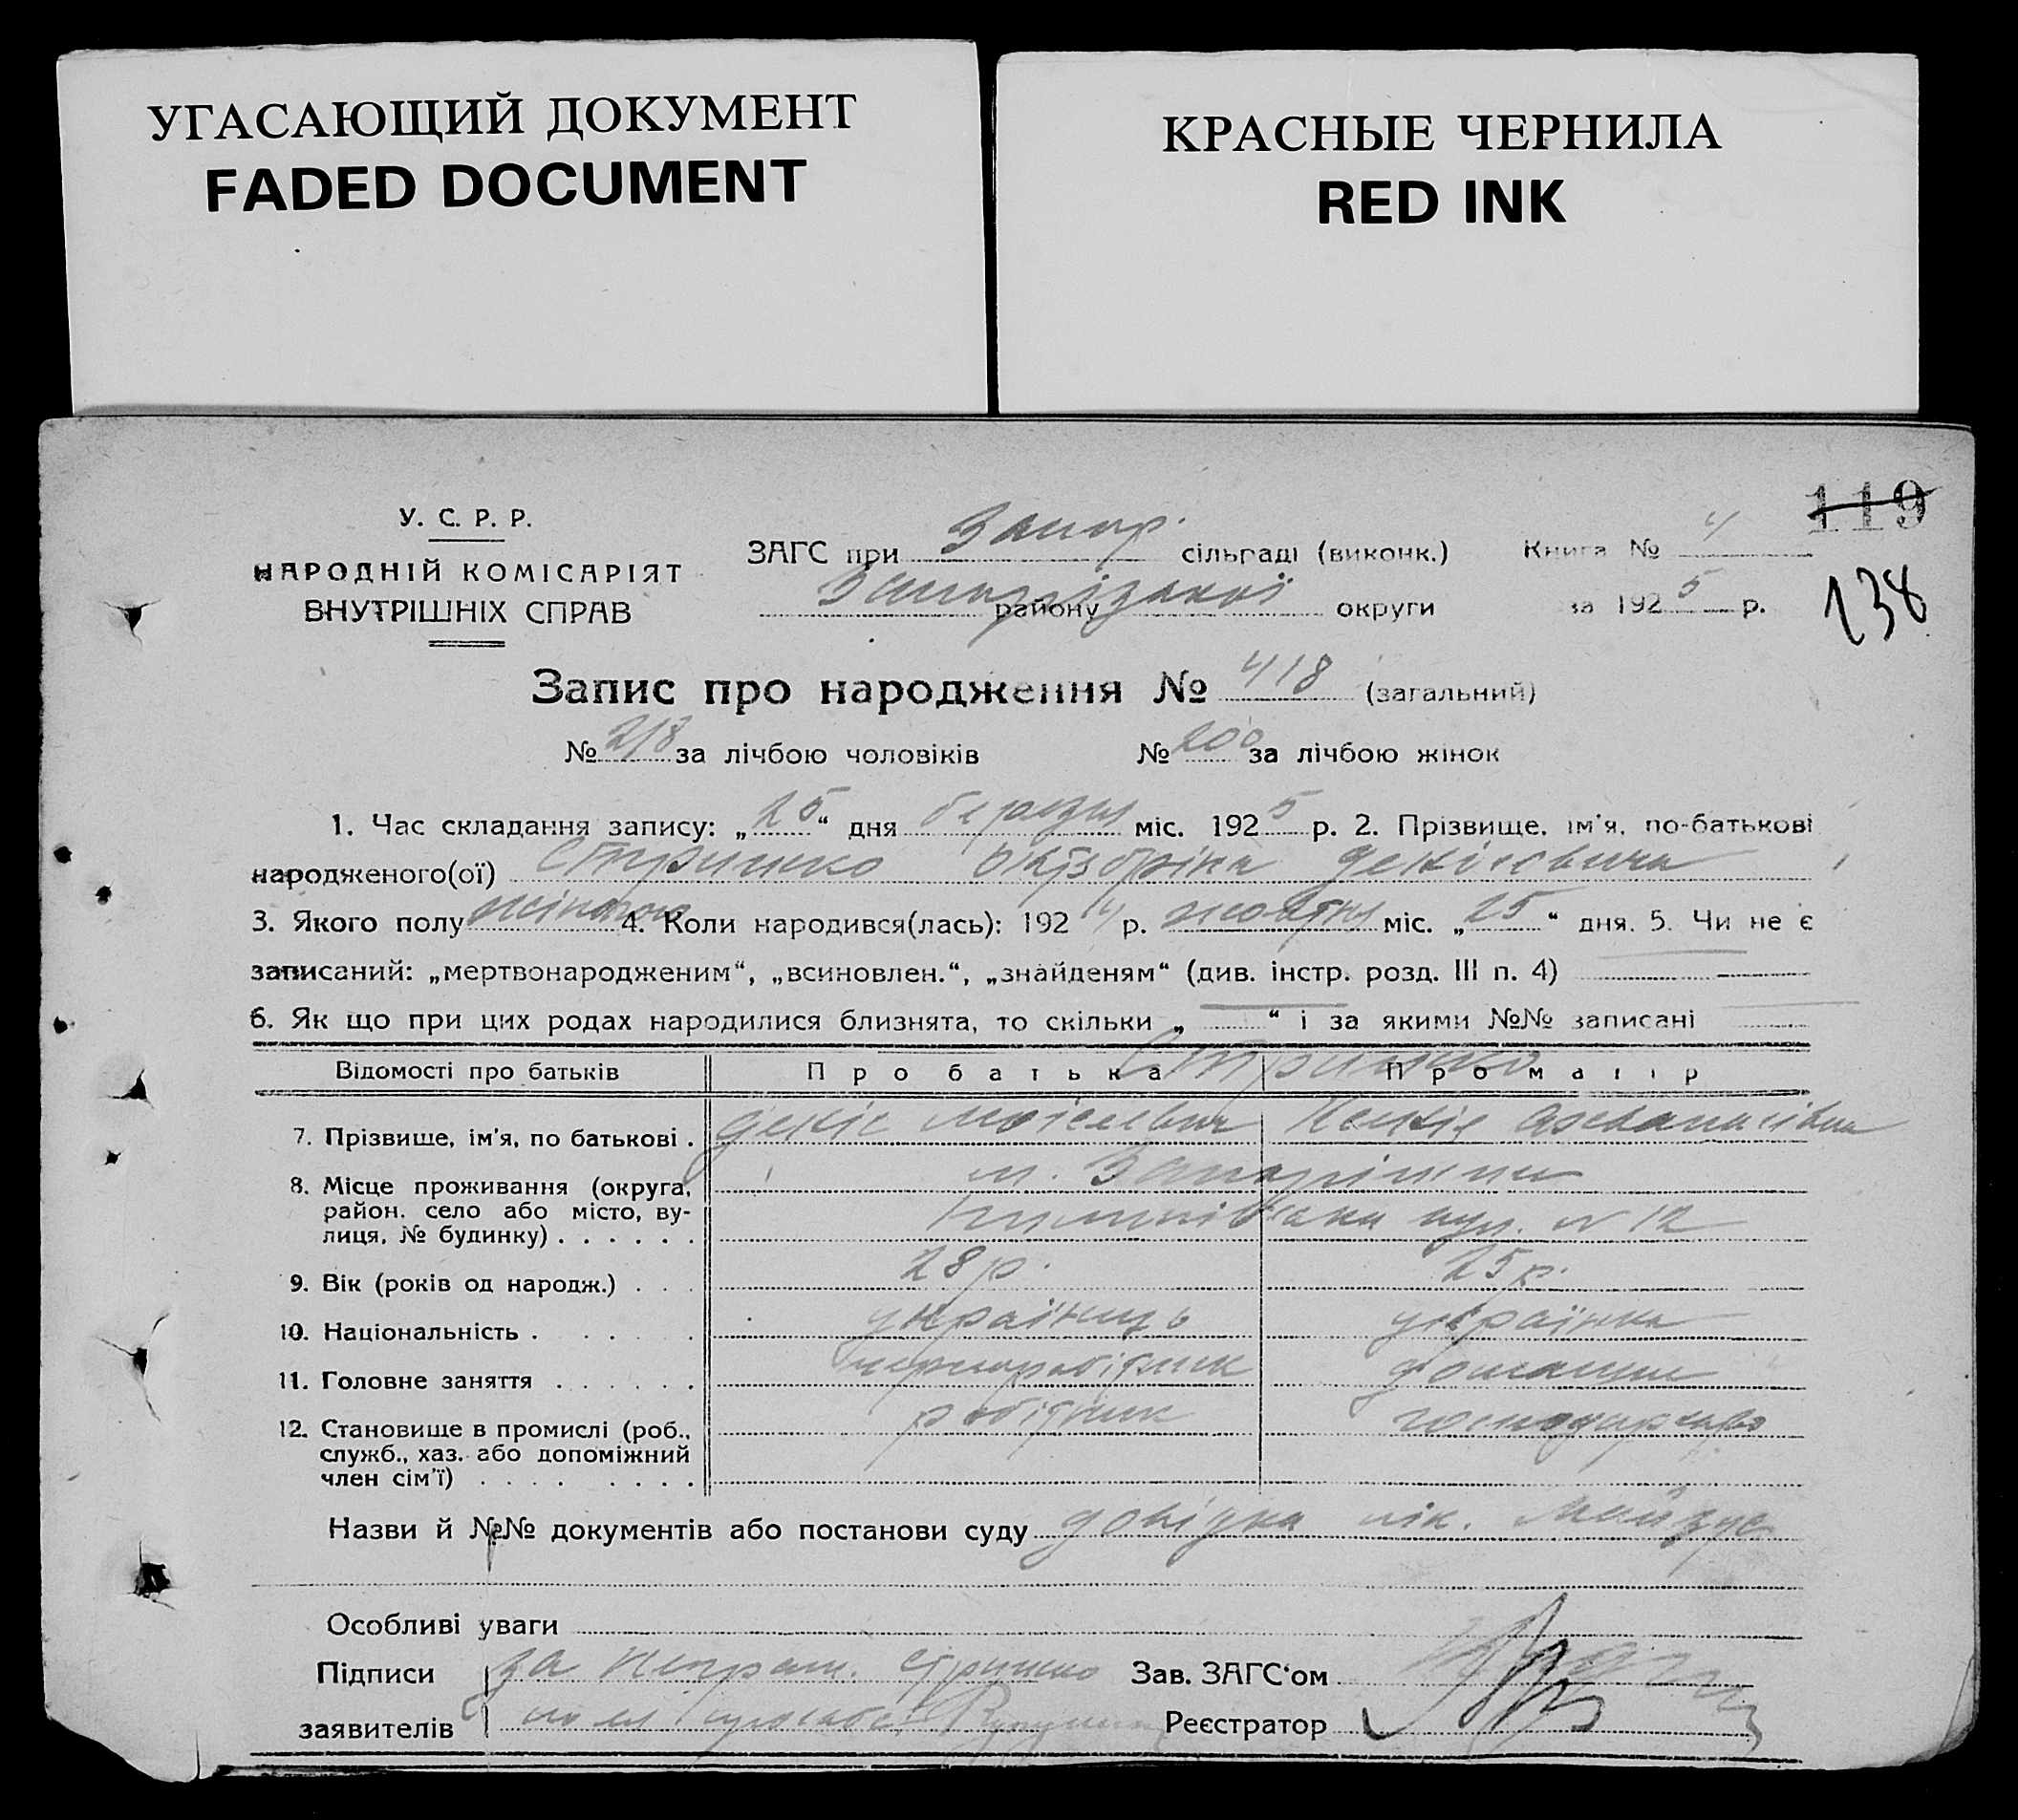 УГАСАЮЩИЙ ДОКУМЕНТ
FADED DOCUMENT
КРАСНЫЕ ЧЕРНИЛА
RED INK
119
138
У. С. Р. Р.
НАРОДНІЙ КОМІСАРІЯТ
ВНУТРІШНІХ СПРАВ
ЗАГС при Запор. сільраді (виконк.) Книга № 4
району Запорізької округи за 1925 р.
Запис про народження № 418 (загальний)
№ 218 за лічбою чоловіків № 200 за лічбою жінок
1. Час складання запису: „25“ дня березня міс. 1925 р. 2. Прізвище, ім'я, по-батькові
народженого(ої)
3. Якого полу жіночого 4. Коли народився(лась): 1924 р. жовтня міс. „25“ дня. 5. Чи не є
записаний: „мертвонародженим“, „всиновлен.“, „знайденям“ (див. інстр. розд. III п. 4)
6. Як що при цих родах народилися близнята, то скільки „ “ і за якими №№ записані
Відомості про батьків Про батька Про матір
7. Прізвище, ім'я, по батькові .
8. Місце проживання (округа, м. Запоріжжя
район. село або місто, ву-
лиця, № будинку) . . . . . . вул. № 12
9. Вік (років од народж.) . . . 28 р. 25 р.
10. Національність . . . . . . українець українка
11. Головне заняття . . . . . . чорноробітник домашнє
12. Становище в промислі (роб., робітник господарство
служб., хаз. або допоміжний
член сім'ї) . . . . . . . .
Назви й №№ документів або постанови суду довідка
Особливі уваги
Підписи за неграм. Зав. ЗАГС'ом
заявителів Реєстратор